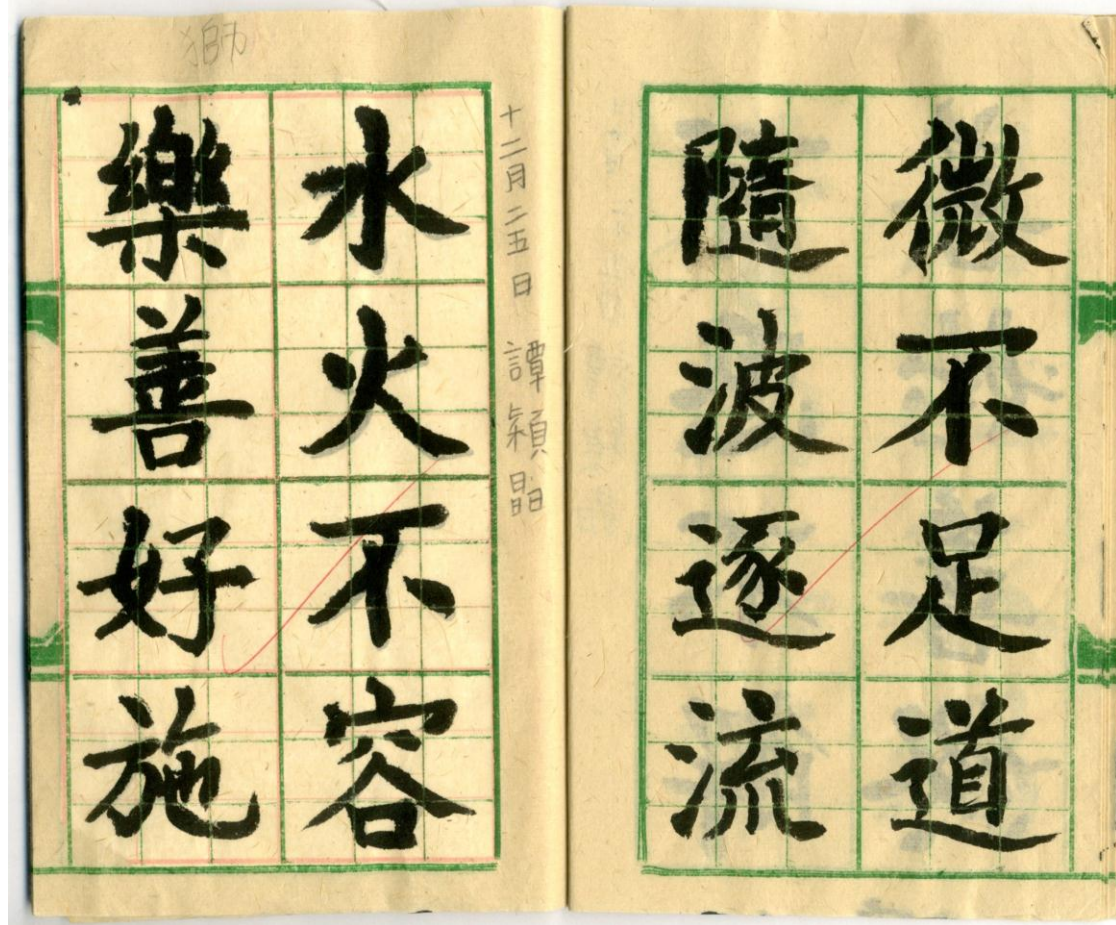 微不足道
隨波逐流
十二月二五日 譚穎晶
水火不容
樂善好施